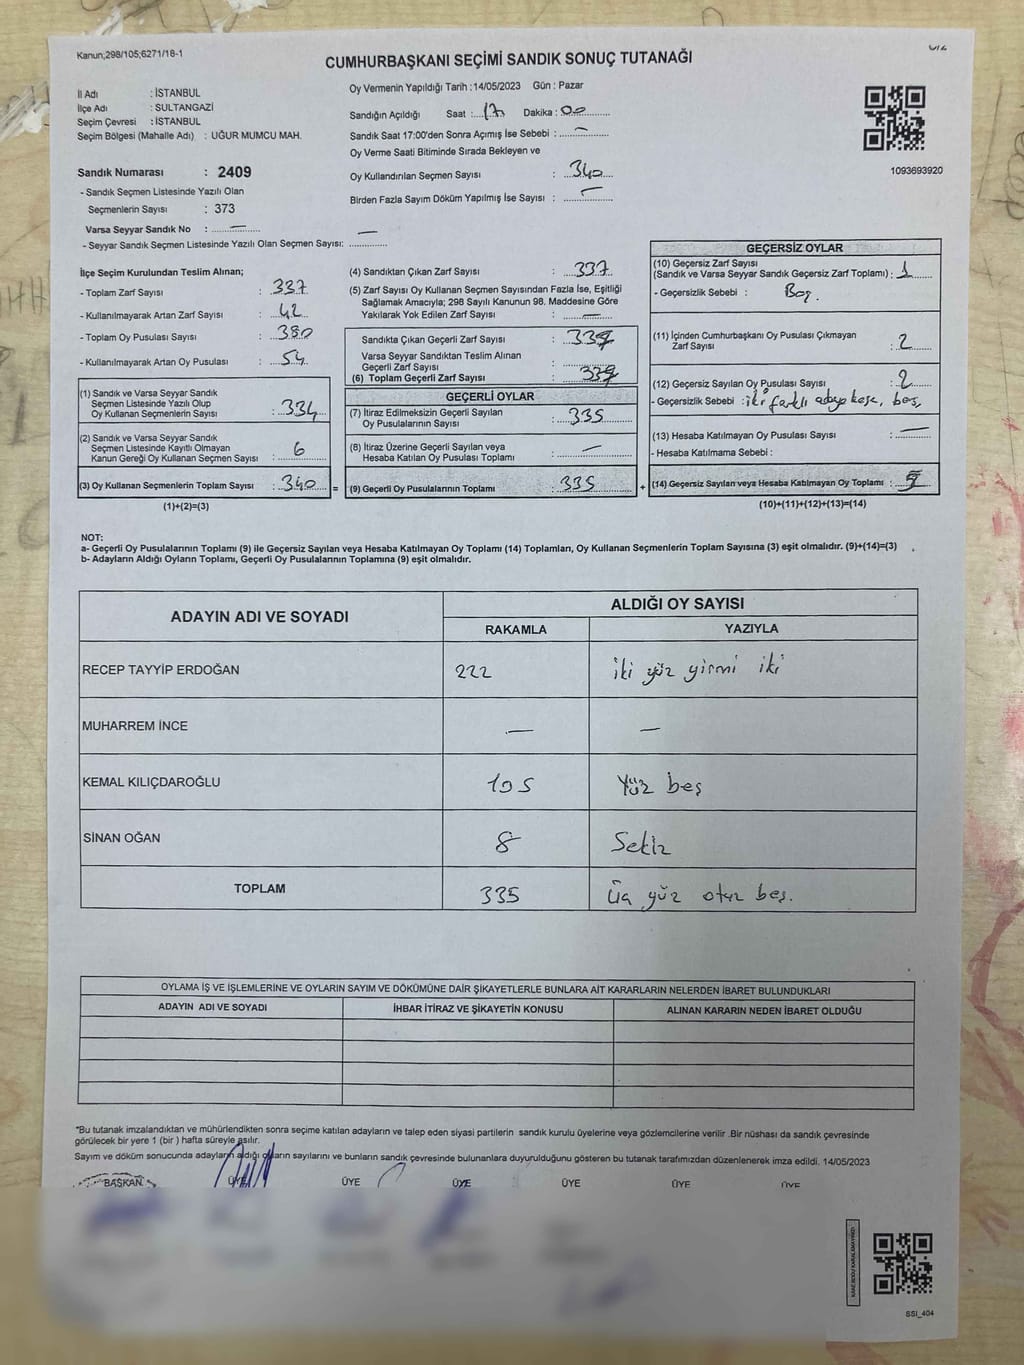 Kanun;298/105;6271/18-1
CUMHURBAŞKANI SEÇİMİ SANDIK SONUÇ TUTANAĞI
İl Adı : İSTANBUL
İlçe Adı : SULTANGAZİ
Seçim Çevresi : İSTANBUL
Seçim Bölgesi (Mahalle Adı) : UĞUR MUMCU MAH.
Sandık Numarası : 2409
- Sandık Seçmen Listesinde Yazılı Olan
Seçmenlerin Sayısı : 373
Varsa Seyyar Sandık No : —
- Seyyar Sandık Seçmen Listesinde Yazılı Olan Seçmen Sayısı: —
Oy Vermenin Yapıldığı Tarih :14/05/2023 Gün : Pazar
Sandığın Açıldığı Saat : 17 Dakika : 00
Sandık Saat 17:00'den Sonra Açımış İse Sebebi : —
Oy Verme Saati Bitiminde Sırada Bekleyen ve
Oy Kullandırılan Seçmen Sayısı : 340
Birden Fazla Sayım Döküm Yapılmış İse Sayısı : —
1093693920
İlçe Seçim Kurulundan Teslim Alınan;
- Toplam Zarf Sayısı : 337
- Kullanılmayarak Artan Zarf Sayısı : 42
- Toplam Oy Pusulası Sayısı : 380
- Kullanılmayarak Artan Oy Pusulası : 54
(1) Sandık ve Varsa Seyyar Sandık
Seçmen Listesinde Yazılı Olup
Oy Kullanan Seçmenlerin Sayısı : 334
(2) Sandık ve Varsa Seyyar Sandık
Seçmen Listesinde Kayıtlı Olmayan
Kanun Gereği Oy Kullanan Seçmen Sayısı : 6
(3) Oy Kullanan Seçmenlerin Toplam Sayısı : 340 =
(1)+(2)=(3)
(4) Sandıktan Çıkan Zarf Sayısı : 337
(5) Zarf Sayısı Oy Kullanan Seçmen Sayısından Fazla İse, Eşitliği
Sağlamak Amacıyla; 298 Sayılı Kanunun 98. Maddesine Göre
Yakılarak Yok Edilen Zarf Sayısı : —
Sandıkta Çıkan Geçerli Zarf Sayısı :
Varsa Seyyar Sandıktan Teslim Alınan
Geçerli Zarf Sayısı :
(6) Toplam Geçerli Zarf Sayısı :
GEÇERLİ OYLAR
(7) İtiraz Edilmeksizin Geçerli Sayılan
Oy Pusulalarının Sayısı : 335
(8) İtiraz Üzerine Geçerli Sayılan veya
Hesaba Katılan Oy Pusulası Toplamı : —
(9) Geçerli Oy Pusulalarının Toplamı : 335 +
GEÇERSİZ OYLAR
(10) Geçersiz Zarf Sayısı
(Sandık ve Varsa Seyyar Sandık Geçersiz Zarf Toplamı) : 1
- Geçersizlik Sebebi : Boş.
(11) İçinden Cumhurbaşkanı Oy Pusulası Çıkmayan
Zarf Sayısı : 2
(12) Geçersiz Sayılan Oy Pusulası Sayısı : 2
- Geçersizlik Sebebi : iki farklı adaya kaşe, boş,
(13) Hesaba Katılmayan Oy Pusulası Sayısı : —
- Hesaba Katılmama Sebebi :
(14) Geçersiz Sayılan veya Hesaba Katılmayan Oy Toplamı :
(10)+(11)+(12)+(13)=(14)
NOT:
a- Geçerli Oy Pusulalarının Toplamı (9) ile Geçersiz Sayılan veya Hesaba Katılmayan Oy Toplamı (14) Toplamları, Oy Kullanan Seçmenlerin Toplam Sayısına (3) eşit olmalıdır. (9)+(14)=(3)
b- Adayların Aldığı Oyların Toplamı, Geçerli Oy Pusulalarının Toplamına (9) eşit olmalıdır.
ADAYIN ADI VE SOYADI ALDIĞI OY SAYISI
RAKAMLA YAZIYLA
RECEP TAYYİP ERDOĞAN 222 iki yüz yirmi iki
MUHARREM İNCE — —
KEMAL KILIÇDAROĞLU 105 Yüz beş
SİNAN OĞAN 8 Sekiz
TOPLAM 335 Üç yüz otuz beş.
OYLAMA İŞ VE İŞLEMLERİNE VE OYLARIN SAYIM VE DÖKÜMÜNE DAİR ŞİKAYETLERLE BUNLARA AİT KARARLARIN NELERDEN İBARET BULUNDUKLARI
ADAYIN ADI VE SOYADI İHBAR İTİRAZ VE ŞİKAYETİN KONUSU ALINAN KARARIN NEDEN İBARET OLDUĞU
"Bu tutanak imzalandıktan ve mühürlendikten sonra seçime katılan adayların ve talep eden siyasi partilerin sandık kurulu üyelerine veya gözlemcilerine verilir .Bir nüshası da sandık çevresinde
görülecek bir yere 1 (bir ) hafta süreyle asılır.
Sayım ve döküm sonucunda adayların aldığı oyların sayılarını ve bunların sandık çevresinde bulunanlara duyurulduğunu gösteren bu tutanak tarafımızdan düzenlenerek imza edildi. 14/05/2023
BAŞKAN ÜYE ÜYE ÜYE ÜYE ÜYE ÜYE
SSİ_404